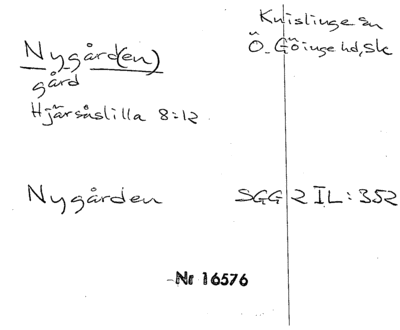 Knislinge sn
Nygård(en)
Ö. Göinge hd, Sk
gård
Hjärsåslilla 8:12
Nygården SGG 2 IL: 352
Nr 16576